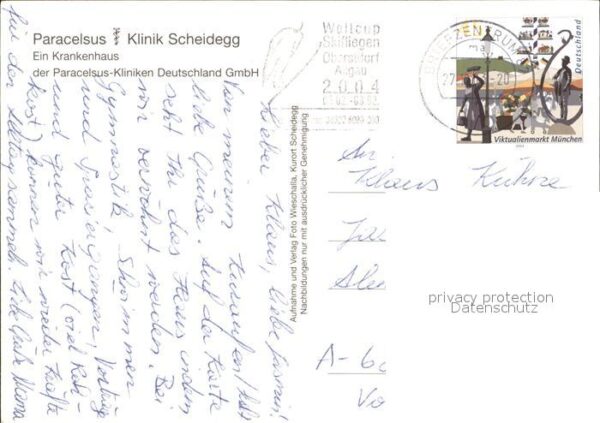 Paracelsus Klinik Scheidegg
Ein Krankenhaus
der Paracelsus-Kliniken Deutschland GmbH
Weltcup
Skifliegen
Oberstdorf
Allgäu
2004
BRIEFZENTRUM
Deutschland
Viktualienmarkt München
Aufnahme und Verlag Foto Wieschalla, Kurort Scheidegg
Nachbildungen nur mit ausdrücklicher Genehmigung
Lieber Klaus, liebe
Von meinem Kuraufenthalt
liebe Grüße. Auf der Karte
seht Ihr das Haus in dem
wir verwöhnt werden. Bei
Gymnastik, Schwimmen
und Spaziergängen, Vorträge
und guter Kost (viel Roh-
kost) können wir wieder Kräfte
für den Alltag sammeln. Liebe Grüße Mama
Klaus Kühne
A-6
privacy protection
Datenschutz